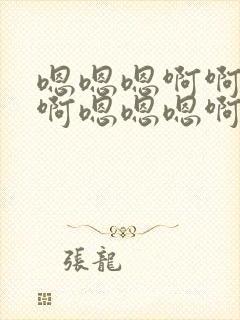 嗯嗯嗯啊啊
啊嗯嗯嗯啊
張龍